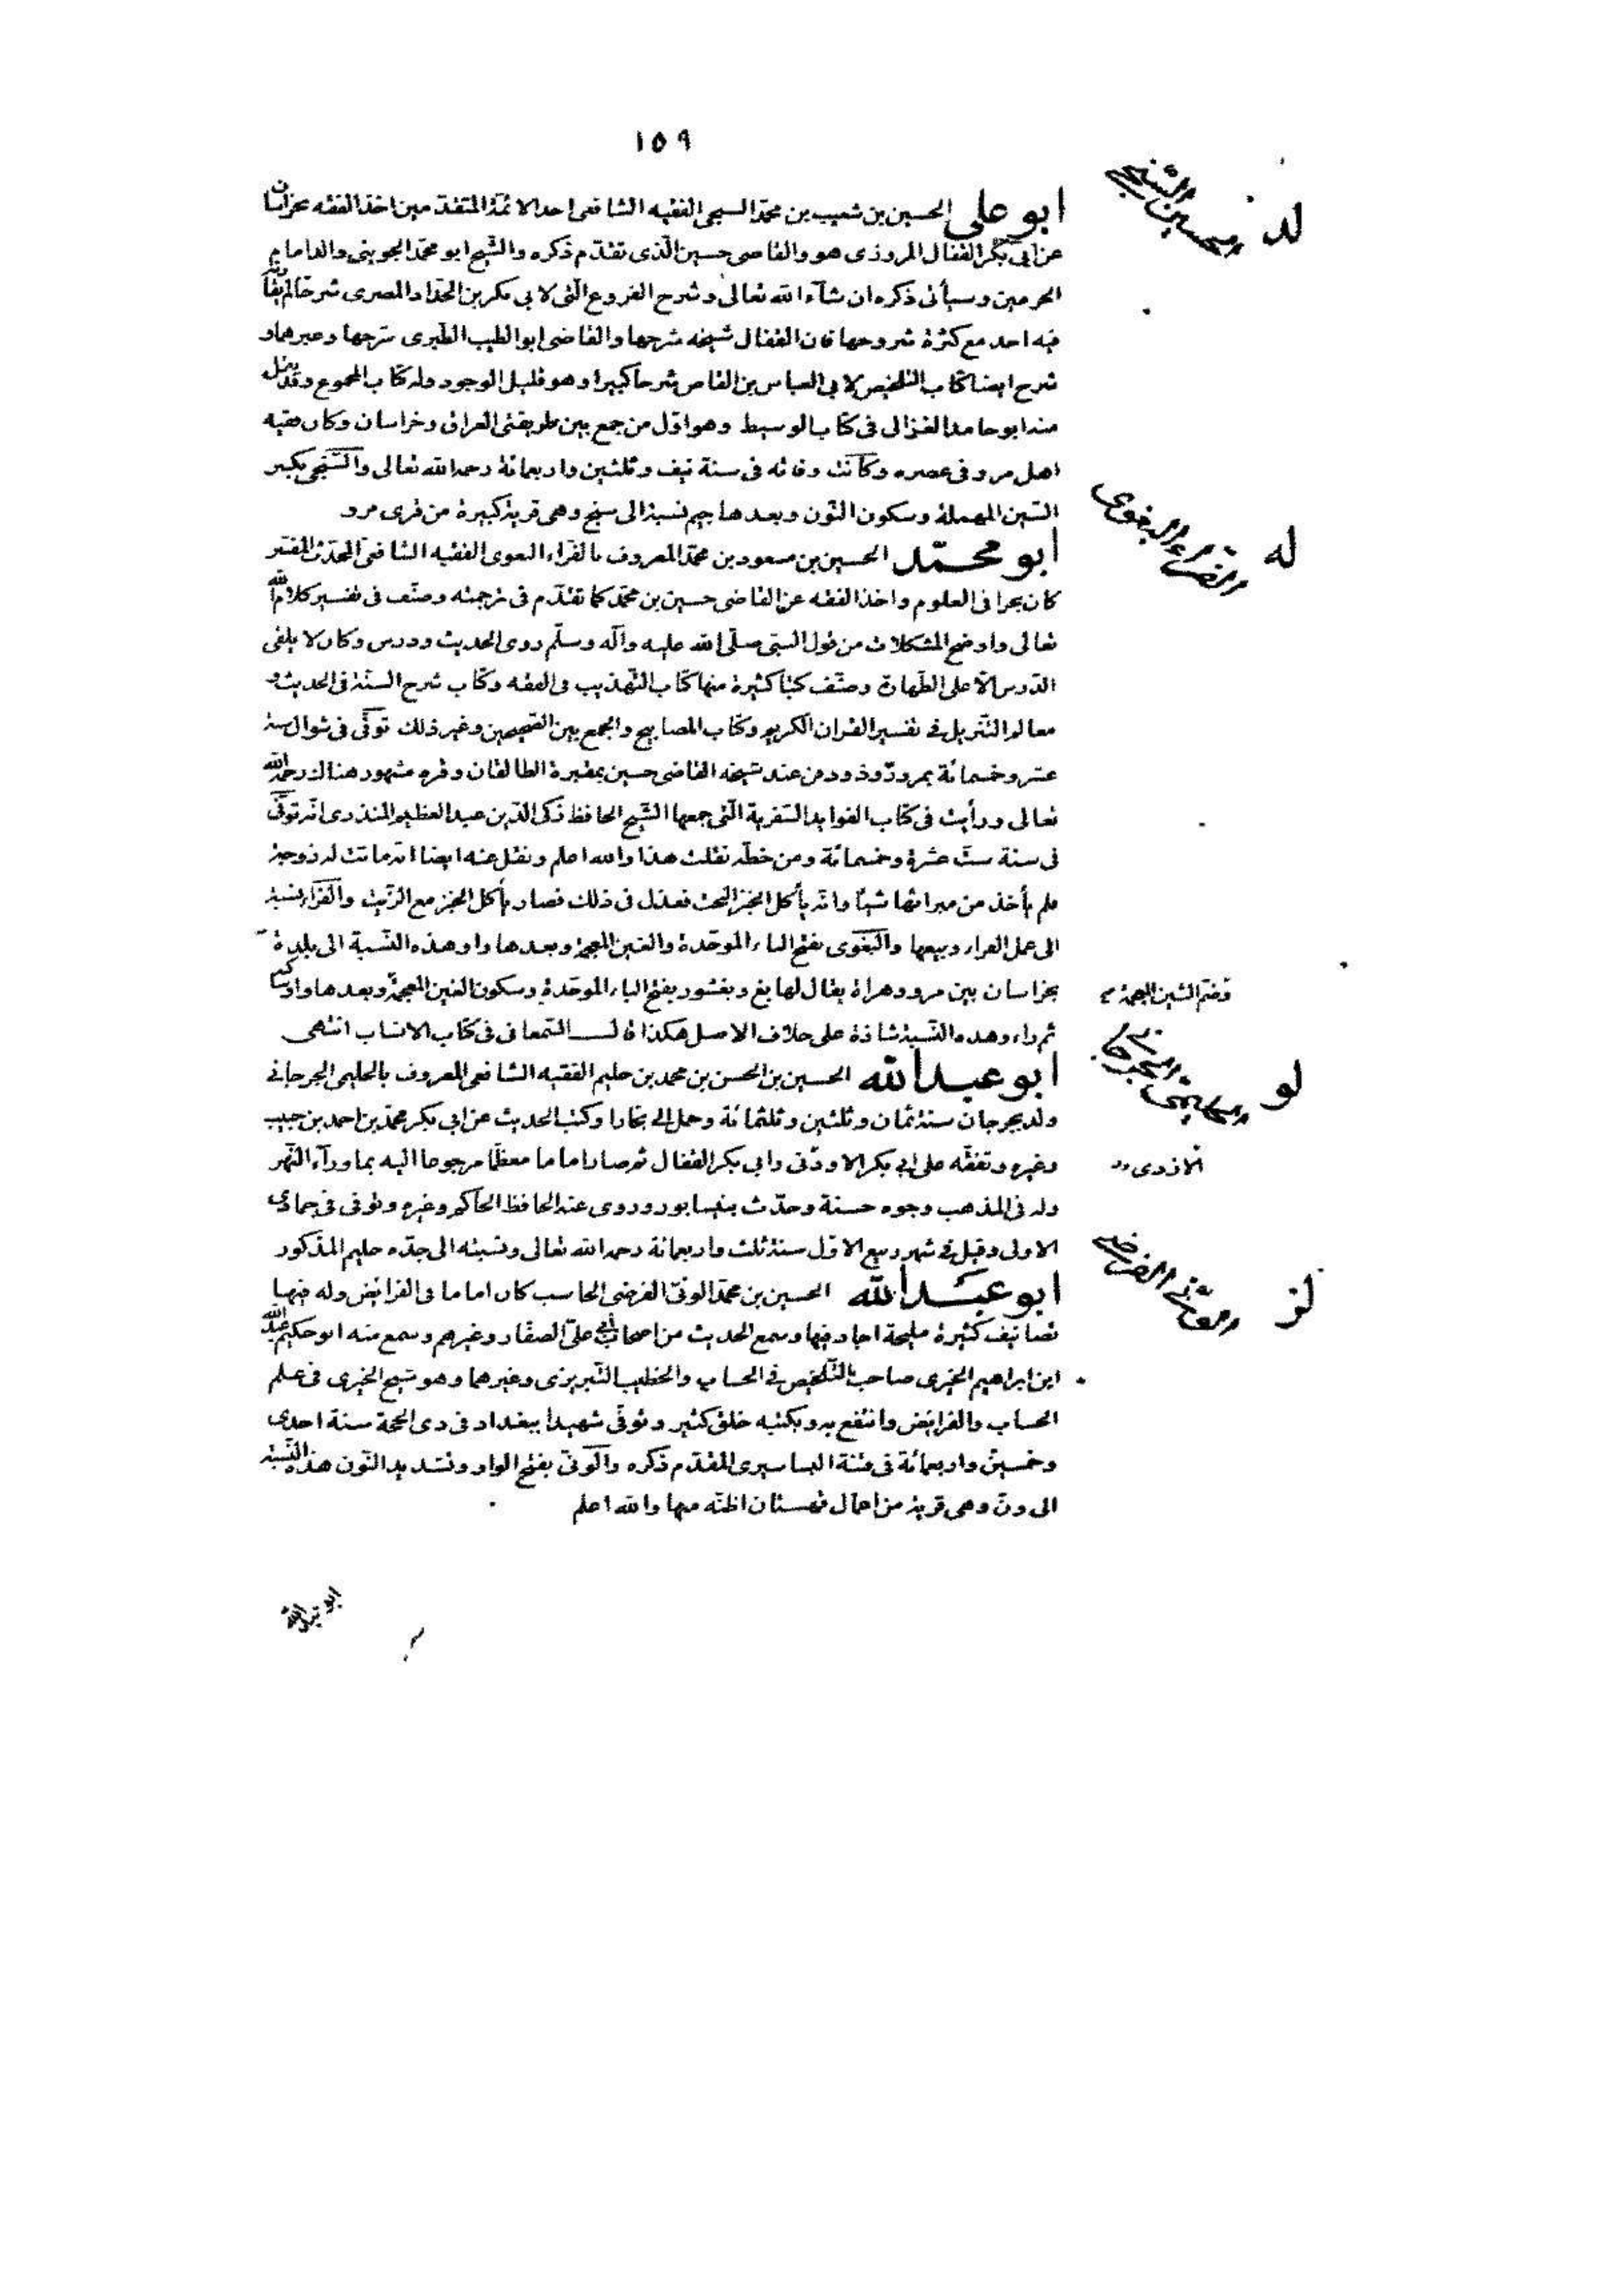 ١٥٩
ابو على الحسين بن شعيب بن محمّد السنجى الفقيه الشافعى احد الائمّة المتقدّمين اخذ الفقه بخراسان
عن ابى بكر القفال المروزى هو والقاضى حسين الّذى تقدّم ذكره والشّيخ ابو محمّد الجوينى والد امام
الحرمين وسيأتى ذكره ان شآء الله تعالى وشرح الفروع الّتى لابى بكر بن الحدّاد المصرى شرحا لم يقاربه
فيه احد مع كثرة شروحها فان القفال شيخه شرحها والقاضى ابو الطيب الطبرى شرحها وغيرهما و
شرح ايضا كتاب التلخيص لابى العباس بن القاص شرحا كبيرا وهو قليل الوجود وله كتاب المجموع وقد نقل
منه ابو حامد الغزالى فى كتاب الوسيط وهو اوّل من جمع بين طريقتى العراق وخراسان وكان فقيه
اهل مرو فى عصره وكانت وفاته فى سنة نيف وثلثين واربعمائة رحمه الله تعالى والسّنجى بكسر
السّين المهملة وسكون النّون وبعدها جيم نسبة الى سنج وهى قرية كبيرة من قرى مرو
ابو محمّد الحسين بن مسعود بن محمّد المعروف بالفرّاء البغوى الفقيه الشافعى المحدّث المفسّر
كان بحرا فى العلوم واخذ الفقه عن القاضى حسين بن محمّد كما تقدّم فى ترجمته وصنّف فى تفسير كلام الله
تعالى واوضح المشكلات من قول النبى صلّى الله عليه وآله وسلّم روى الحديث ودرس وكان لا يلقى
الدّرس الّا على الطّهارة وصنّف كتبا كثيرة منها كتاب التّهذيب فى الفقه وكتاب شرح السنّة فى الحديث و
معالم التّنزيل فى تفسير القران الكريم وكتاب المصابيح والجمع بين الصّحيحين وغير ذلك توفّى فى شوال سنة
عشر وخمسمائة بمروروذ ودفن عند شيخه القاضى حسين بمقبرة الطالقان وقبره مشهور هنالك رحمه الله
تعالى ورأيت فى كتاب الفوايد السّفرية الّتى جمعها الشّيخ الحافظ زكى الدّين عبد العظيم المنذرى انّه توفّى
فى سنة ستّ عشرة وخمسمائة ومن خطّه نقلت هذا والله اعلم ونقل عنه ايضا انّه ماتت له زوجة
فلم يأخذ من ميراثها شيئا وانّه يأكل الخبز البحت فعذل فى ذلك فصار يأكل الخبز مع الزّيت والفرّاء نسبة
الى عمل الفراء وبيعها والبغوى بفتح الباء الموحّدة والغين المعجمة وبعدها واو هذه النّسبة الى بلدة
بخراسان بين مرو وهراة يقال لها بغ وبغشور بفتح الباء الموحّدة وسكون الغين المعجمة وبعدها واو ساكنة
ثم راء وهذه النّسبة شاذة على خلاف الاصل هكذا قال السّمعانى فى كتاب الانساب انتهى
ابو عبد الله الحسين بن الحسن بن محمد بن حليم الفقيه الشافعى المعروف بالحليمى الجرجانى
ولد بجرجان سنة ثمان وثلثين وثلثمائة وحمل الى بخارا وكتب الحديث عن ابى بكر محمّد بن احمد بن حبيب
وغيره وتفقّه على ابى بكر الاودنى وابى بكر القفال ثم صار اماما معظّما مرجوعا اليه بما ورآء النّهر
وله فى المذهب وجوه حسنة وحدّث بنيسابور وروى عنه الحافظ الحاكم وغيره وتوفى فى جمادى
الاولى وقيل فى شهر ربيع الاوّل سنة ثلث واربعمائة رحمه الله تعالى ونسبته الى جدّه حليم المذكور
ابو عبد الله الحسين بن محمّد الونّى الفرضى الحاسب كان اماما فى الفرائض وله فيها
تصانيف كثيرة مليحة اجاد فيها وسمع الحديث من اصحاب ابى على الصفّار وغيرهم وسمع منه ابو حكيم عبد الله
ابن ابراهيم الخبرى صاحب التّلخيص فى الحساب والخطيب التّبريزى وغيرهما وهو شيخ الخبرى فى علم
الحساب والفرائض وانتفع به وبكتبه خلق كثير وتوفّى شهيدا ببغداد فى ذى الحجة سنة احدى
وخمسين واربعمائة فى فتنة البساسيرى المقدّم ذكره والونّى بفتح الواو وتشديد النّون هذه النّسبة
الى ونّ وهى قرية من اعمال قهستان اظنّه منها والله اعلم
لد حسين السنجى
له الفراء البغوى
وضم الشين المعجمة
لو الحليمى الجرجانى
الازدى
لز الونّى الفرضى
ابو عبد الله